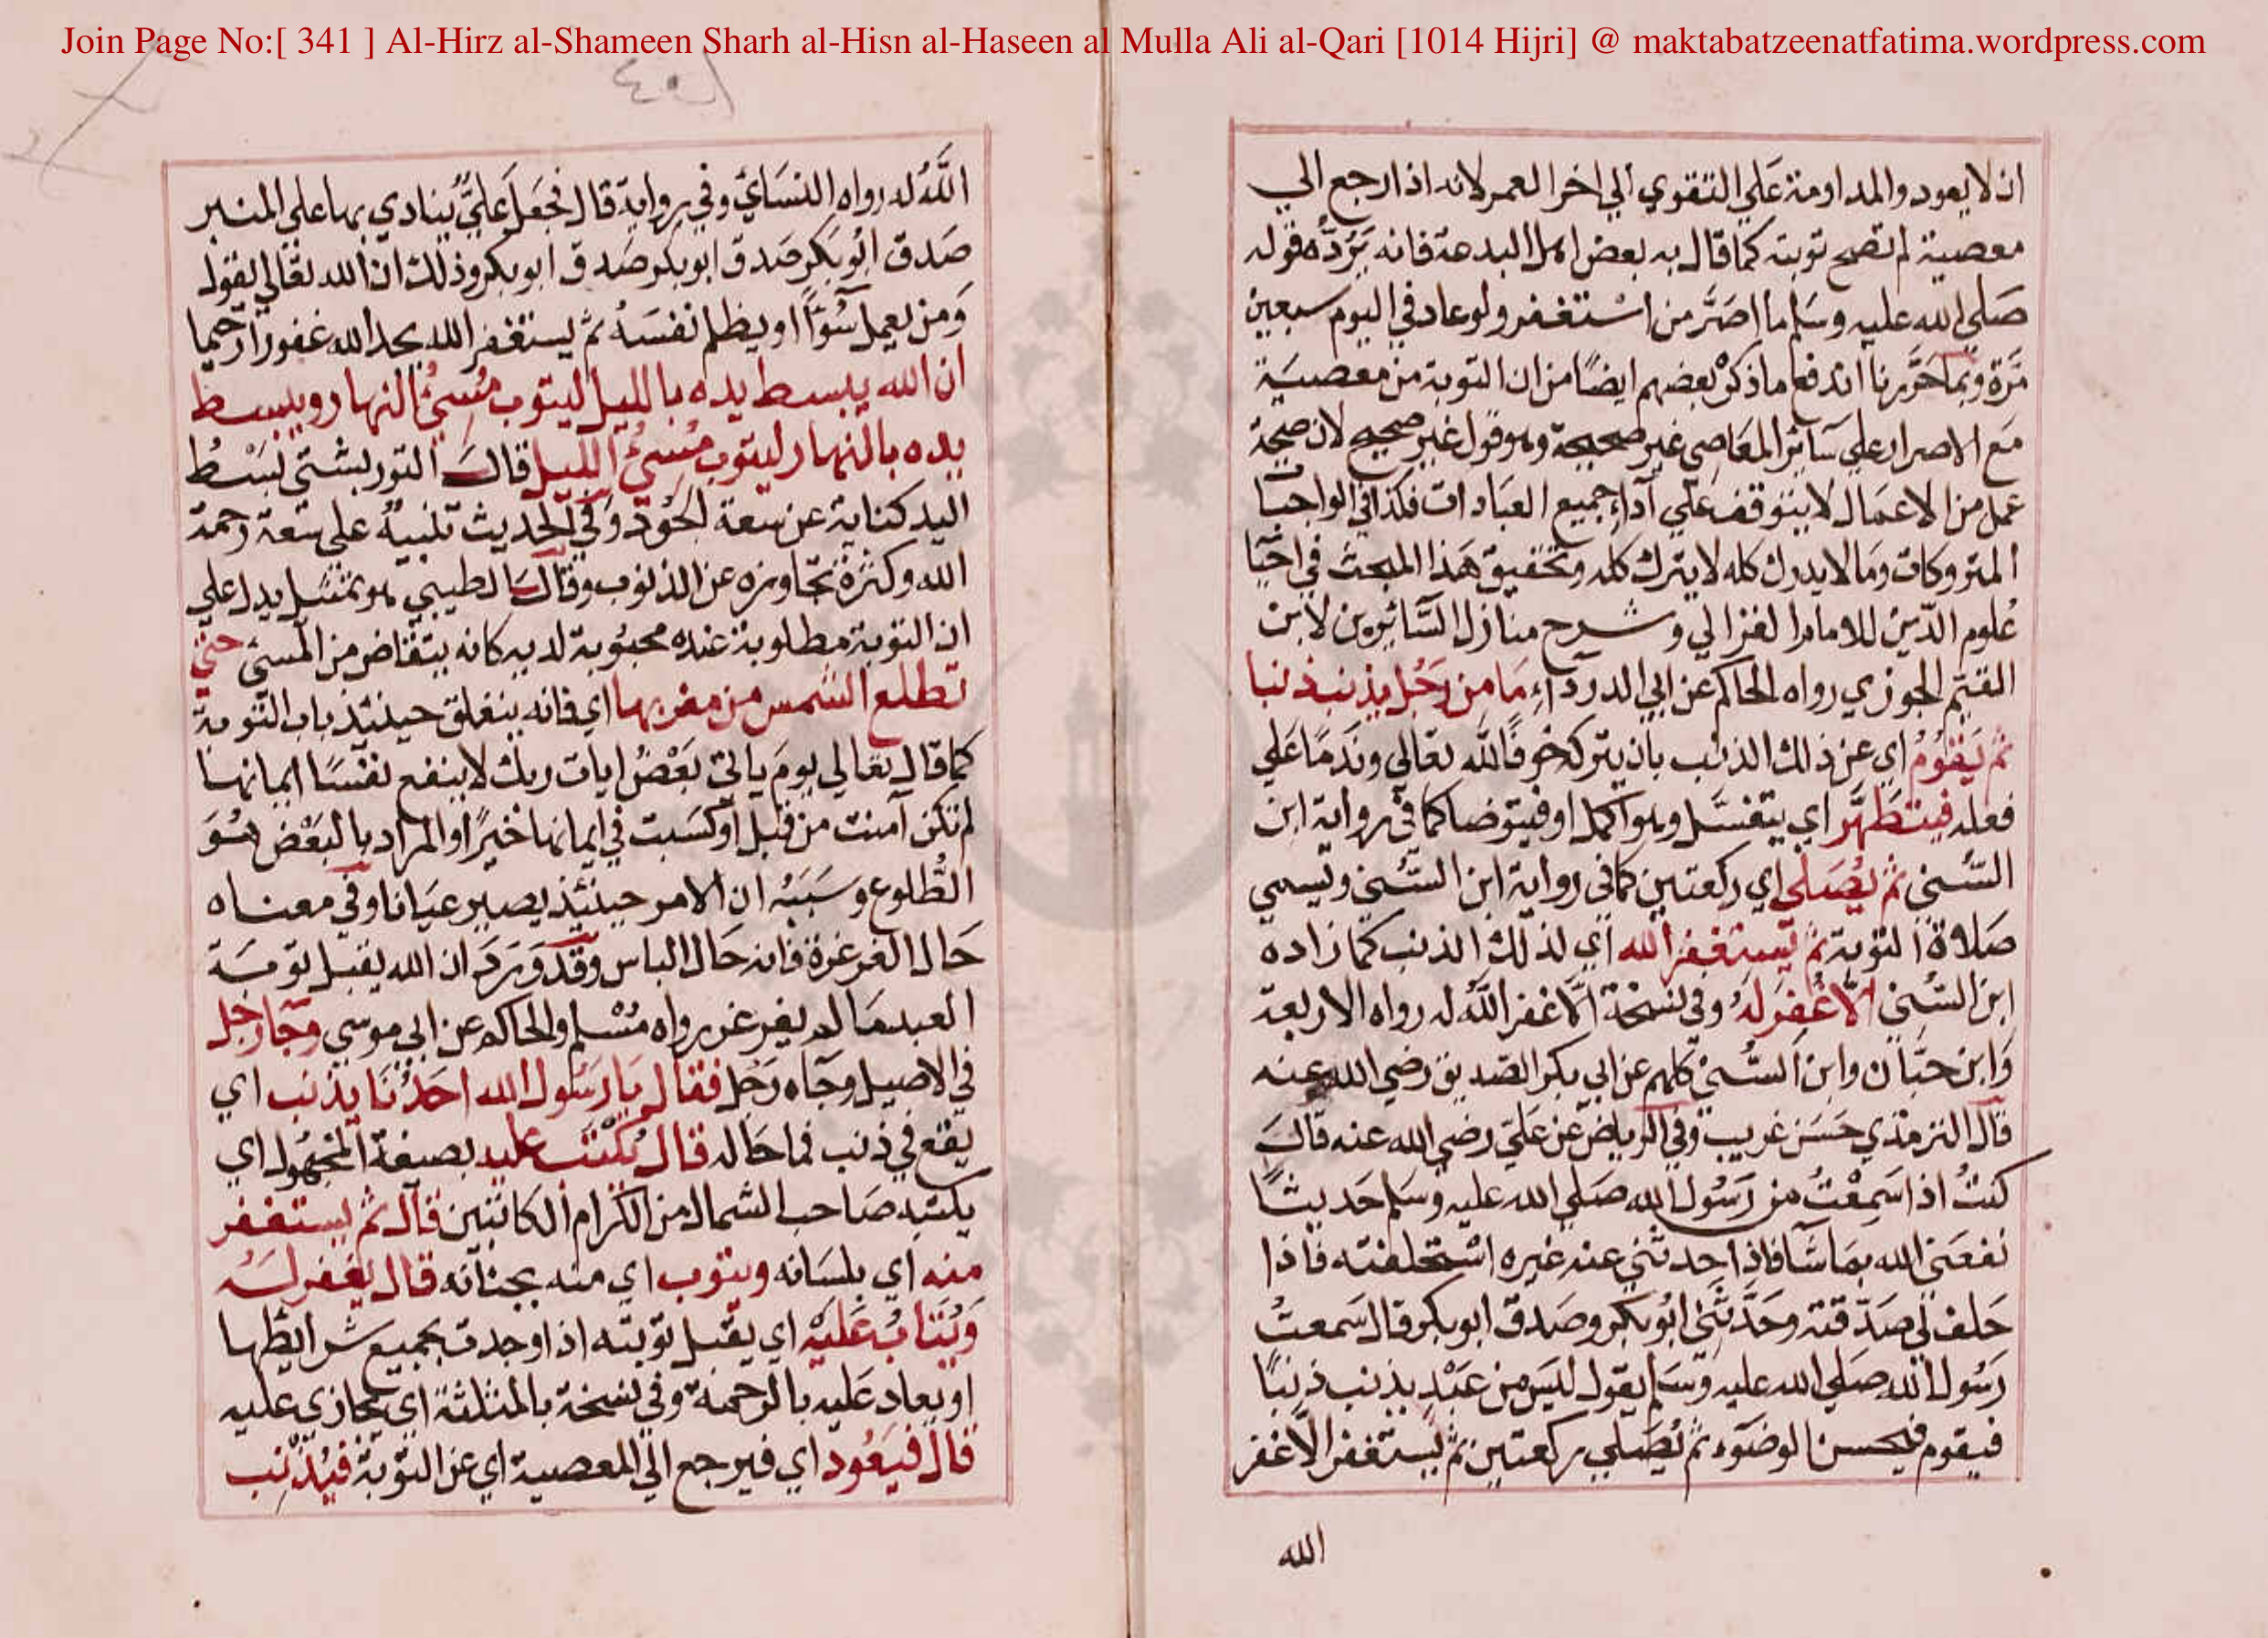 Join Page No:[ 341 ] Al-Hirz al-Shameen Sharh al-Hisn al-Haseen al Mulla Ali al-Qari [1014 Hijri] @ maktabatzeenatfatima.wordpress.com
ان لا يعود والمداومة على التقوي الي اخر العمر لانه اذا رجع الي
معصية لم تصح توبته كما قال به بعض اهل البدعة فانه يَرُدُّه قوله
صَلي الله عليه وسَلم ما اصَرَّ من اسْتغفر ولو عاد في اليوم سبعين
مَرّة وبما حَرَّرنا اندفع ما ذكرْ بعضهم ايضًا من ان التوبة من معصيَة
مَع الاصرار علي سَائر المعَاصِي غير صحيحة وهو قول غير صحيح لان صحة
عمل من الاعمَال لا يتوقف عَلي آداء جميع العبَادات فكذا في الواجبات
المتروكات وَما لا يدرك كله لا يترك كله وتحقيق هَذا المبحث في احيَا
عُلوم الدّين للامام الغزالي وشرح منازل السَّائرين لابن
القيّم الجوزي رواه الحاكم عن ابي الدرداء مَا من رَجُل يذنب ذنبا
ثم يَقُومُ اي عن ذلك الذنب بان يتركه خوفًا لله تعَالي ونَدَمًا عَلي
فعله فيتطَهَّر اي يغتسَل وهو اكمل او فيتوضا كما في رواية ابن
السُّني ثم يُصَلي اي ركعتين كما في رواية ابن السُّني ويسمي
صَلاة التوبة ثم يَستغفر الله اي لذلك الذنب كما زاده
ابن السُّني الَّا غُفِرَلهُ وفي نسخة الّا غفر اللَّهُ له رواه الاربعة
وَابن حبَّان وابن السُّنيْ كلهم عن ابي بكر الصّديق رضي الله عنه
قال الترمذي حَسَن غريب وفي الرياض عن عَليّ رضي الله عنه قالَ
كنتُ اذا سَمِعْتُ من رَسُول الله صَلي الله عليه وسَلم حَديثًا
نفعَني الله بمَا شَا فاذا حدثني عنه غيره اسْتحلفته فاذا
حَلف لي صَدّقته وحَدَّثني ابُو بكر وصَدقَ ابو بكر قال سَمعتُ
رَسُول الله صَلي الله عليه وسَلم يقول ليسَ من عَبْدٍ يذنب ذنبًا
فيقوم فيحسن الوضوء ثم يُصَلي ركعتين ثم يَستغفر الّا غفر
الله
اللَّهُ له رواه النسَائيّ وفي رواية قال فجعَل عَليٌّ ينادي بها علي المنبر
صَدق ابُو بَكر صَدق ابو بكر صَدق ابو بكر وذلك ان الله تعَالي يقول
وَمن يعمل سُوءًا او يظلم نفسَهُ ثم يستغفر الله يجد الله غفورا رحيما
ان الله يبسط يده بالليل ليتوب مُسِيُ النهار ويبسط
يده بالنهار ليتوب مُسِيُ الليل قالَ التوربشتي بَسْطُ
اليد كناية عن سعة الجُود وَفي الحديث تنبيهٌ علي سَعة رحمة
الله وكثرة تجاوزه عن الذنوب وقالَ الطيبي هو تمثيل يدل علي
ان التوبة مطلوبة عنده محبُوبة لديه كانه يتقاضَاها من المسيْ حتي
تطلع الشمس من مغربها اي فانه ينغلق حينئذ باب التّوبة
كما قال تعَالي يومَ ياتي بَعْضُ ايات ربك لا ينفع نفسًا ايمانها
لم تكن آمنت من قبل اَو كسَبت في ايمانها خيْرًا او المراد بالبَعْض هُوَ
الطُّلوع وسَبَبُه ان الامر حينئذ يصير عيَانا وفي معناه
حَال الغرغرة فانه حَال الباس وقد وَرَدَ ان الله يقبل توبَة
العبد مَا لم يغرغر رواه مُسْلم والحاكم عن ابي موسي وجَا رجل
في الاصيل وجَاه رَجُل فقال يَا رَسُول الله احَدُنَا يذنب اي
يقع في ذنب فما حَاله قال يُكْتَب عليه بصيغة المجهُول اي
يكتبه صَاحب الشمال من الكرام الكاتبين قال ثم يستغفر
منه اي بلسَانه ويتوب اي منه بجنانه قال يُغفر لَه
وَيُتابُ عَليْه اي يقبل توبته اذا وجدت بجميع شرايطها
او يعاد عَليه بالرحمة وفي نسخة بالمثلثة اي يجازي عليه
قال فيَعُود اي فيرجع الي المعصية اي عن التوبة فيُذنب